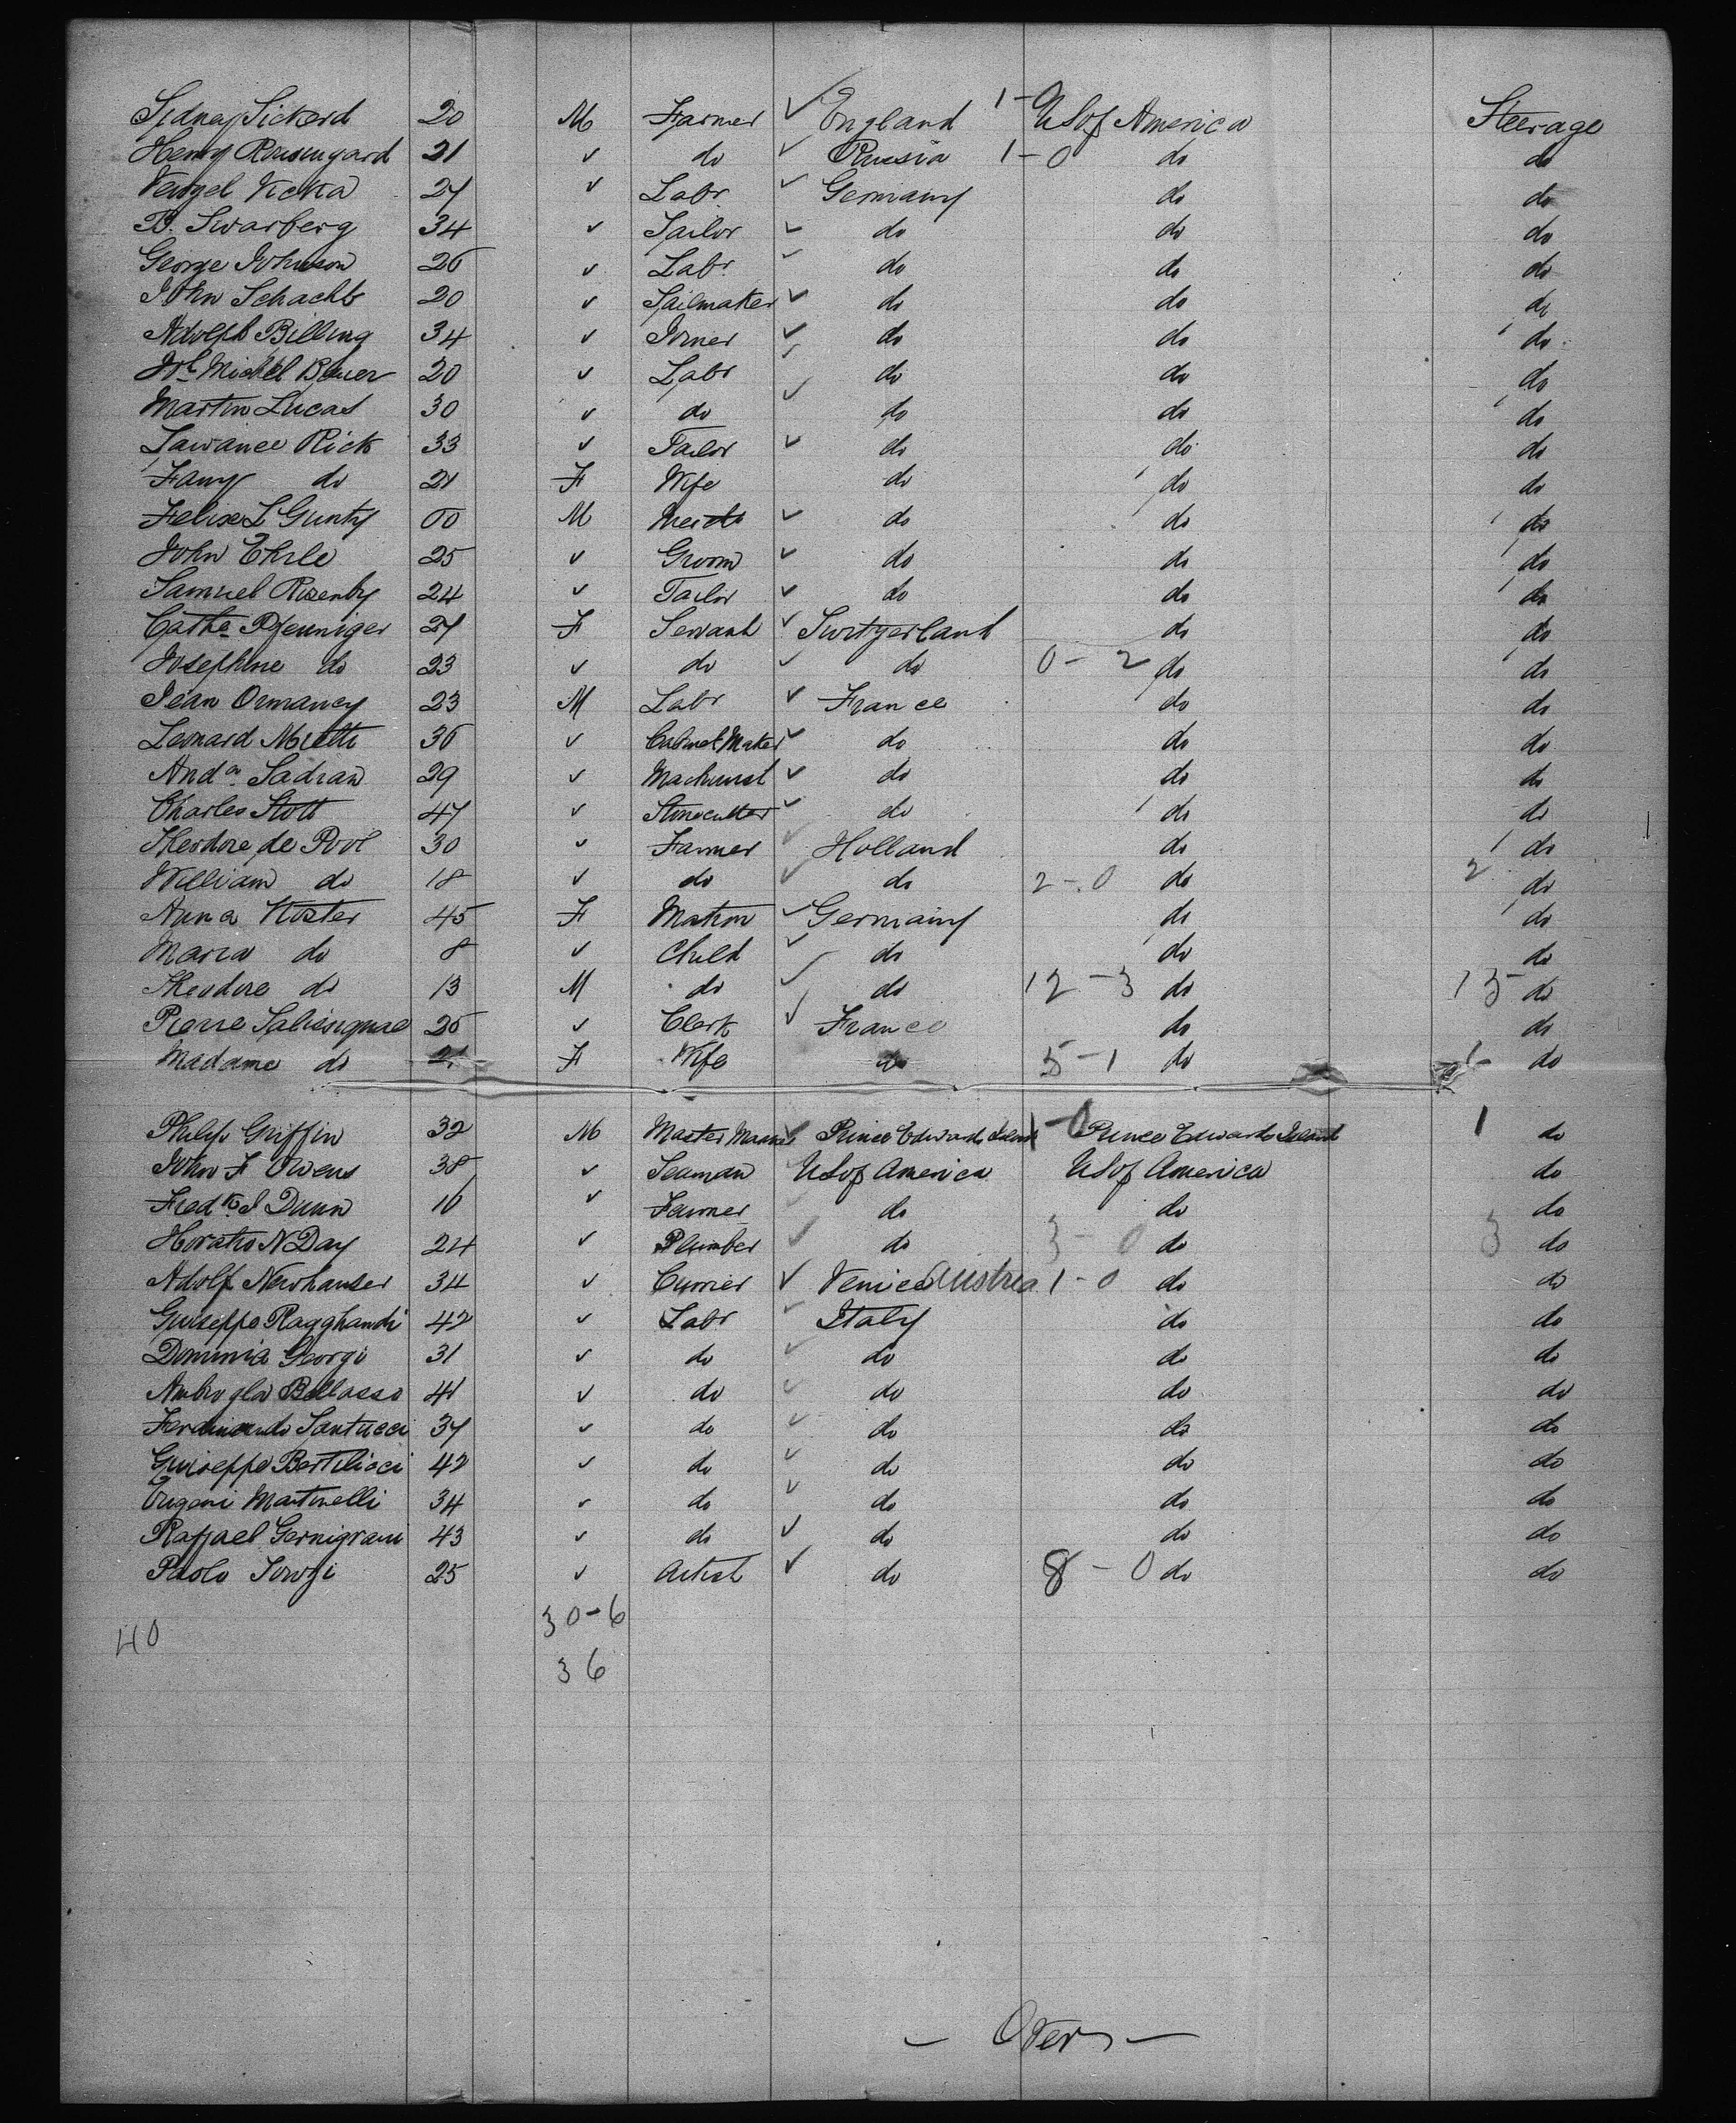 Sidney Sickerd 20 M Farmer ✓ England 1- U S of America Steerage
Henry Rosengard 21 ✓ do ✓ Russia 1-0 do do
Vicka 27 ✓ Labr ✓ Germany do do
B. Swarberg 34 ✓ Tailor ✓ do do do
George Johnson 26 ✓ Labr ✓ do do do
John Schacht 20 ✓ Sailmaker ✓ do do do
Adolph Billing 34 ✓ Joiner ✓ do do do
Michel Bauer 20 ✓ Labr ✓ do do do
Martin Lucas 30 ✓ do ✓ do do do
Lawance Rick 33 ✓ Tailor ✓ do do do
Fanny do 21 F Wife do do do
Felix L Gunty M ✓ do do do
John Ehrle 25 ✓ Groom ✓ do do do
Samuel Rosenby 24 ✓ Tailor ✓ do do do
Cathe Pfenniger 27 F Servant ✓ Switzerland do do
Josephine do 23 ✓ do ✓ do 0-2 do do
Jean Ormancy 23 M Labr ✓ France do do
Leonard 36 ✓ Cabinet Maker ✓ do do do
Sadran 29 ✓ Machinist ✓ do do do
Charles Stott 47 ✓ Stonecutter ✓ do do do
Theodore de Pool 30 ✓ Farmer ✓ Holland do do
William do 18 ✓ do ✓ do 2-0 do 2 do
Anna Köster 45 F Matron ✓ Germany do do
Maria do 8 ✓ Child ✓ do do do
Theodore do 13 M do ✓ do 12-3 do 15 do
Pierre Salissignac 25 ✓ Clerk ✓ France do do
Madame do 21 F Wife do 5-1 do do
Philip Griffin 32 M Master Mariner ✓ Prince Edwards Island 1-0 Prince Edwards Island 1 do
John F Owens 38 ✓ Seaman ✓ U S of America U S of America do
Fredk S Dunn 16 ✓ Farmer ✓ do do do
Horatio N Day 24 ✓ Plumber ✓ do 3-0 do 3 do
Adolf Newhauser 34 ✓ Currier ✓ Venice Austria 1-0 do do
Guiseppe Ragghandi 42 ✓ Labr ✓ Italy do do
Dominia Georgi 31 ✓ do ✓ do do do
Ambrogla Bellasso 41 ✓ do ✓ do do do
Ferdinando Santucci 37 ✓ do ✓ do do do
Guiseppe Bertiliaci 42 ✓ do ✓ do do do
Eugeni Martinelli 34 ✓ do ✓ do do do
Raffael Gernigrani 43 ✓ do ✓ do do do
Paolo 25 ✓ Artist ✓ do 8-0 do do
30-6
40
36
- Over -